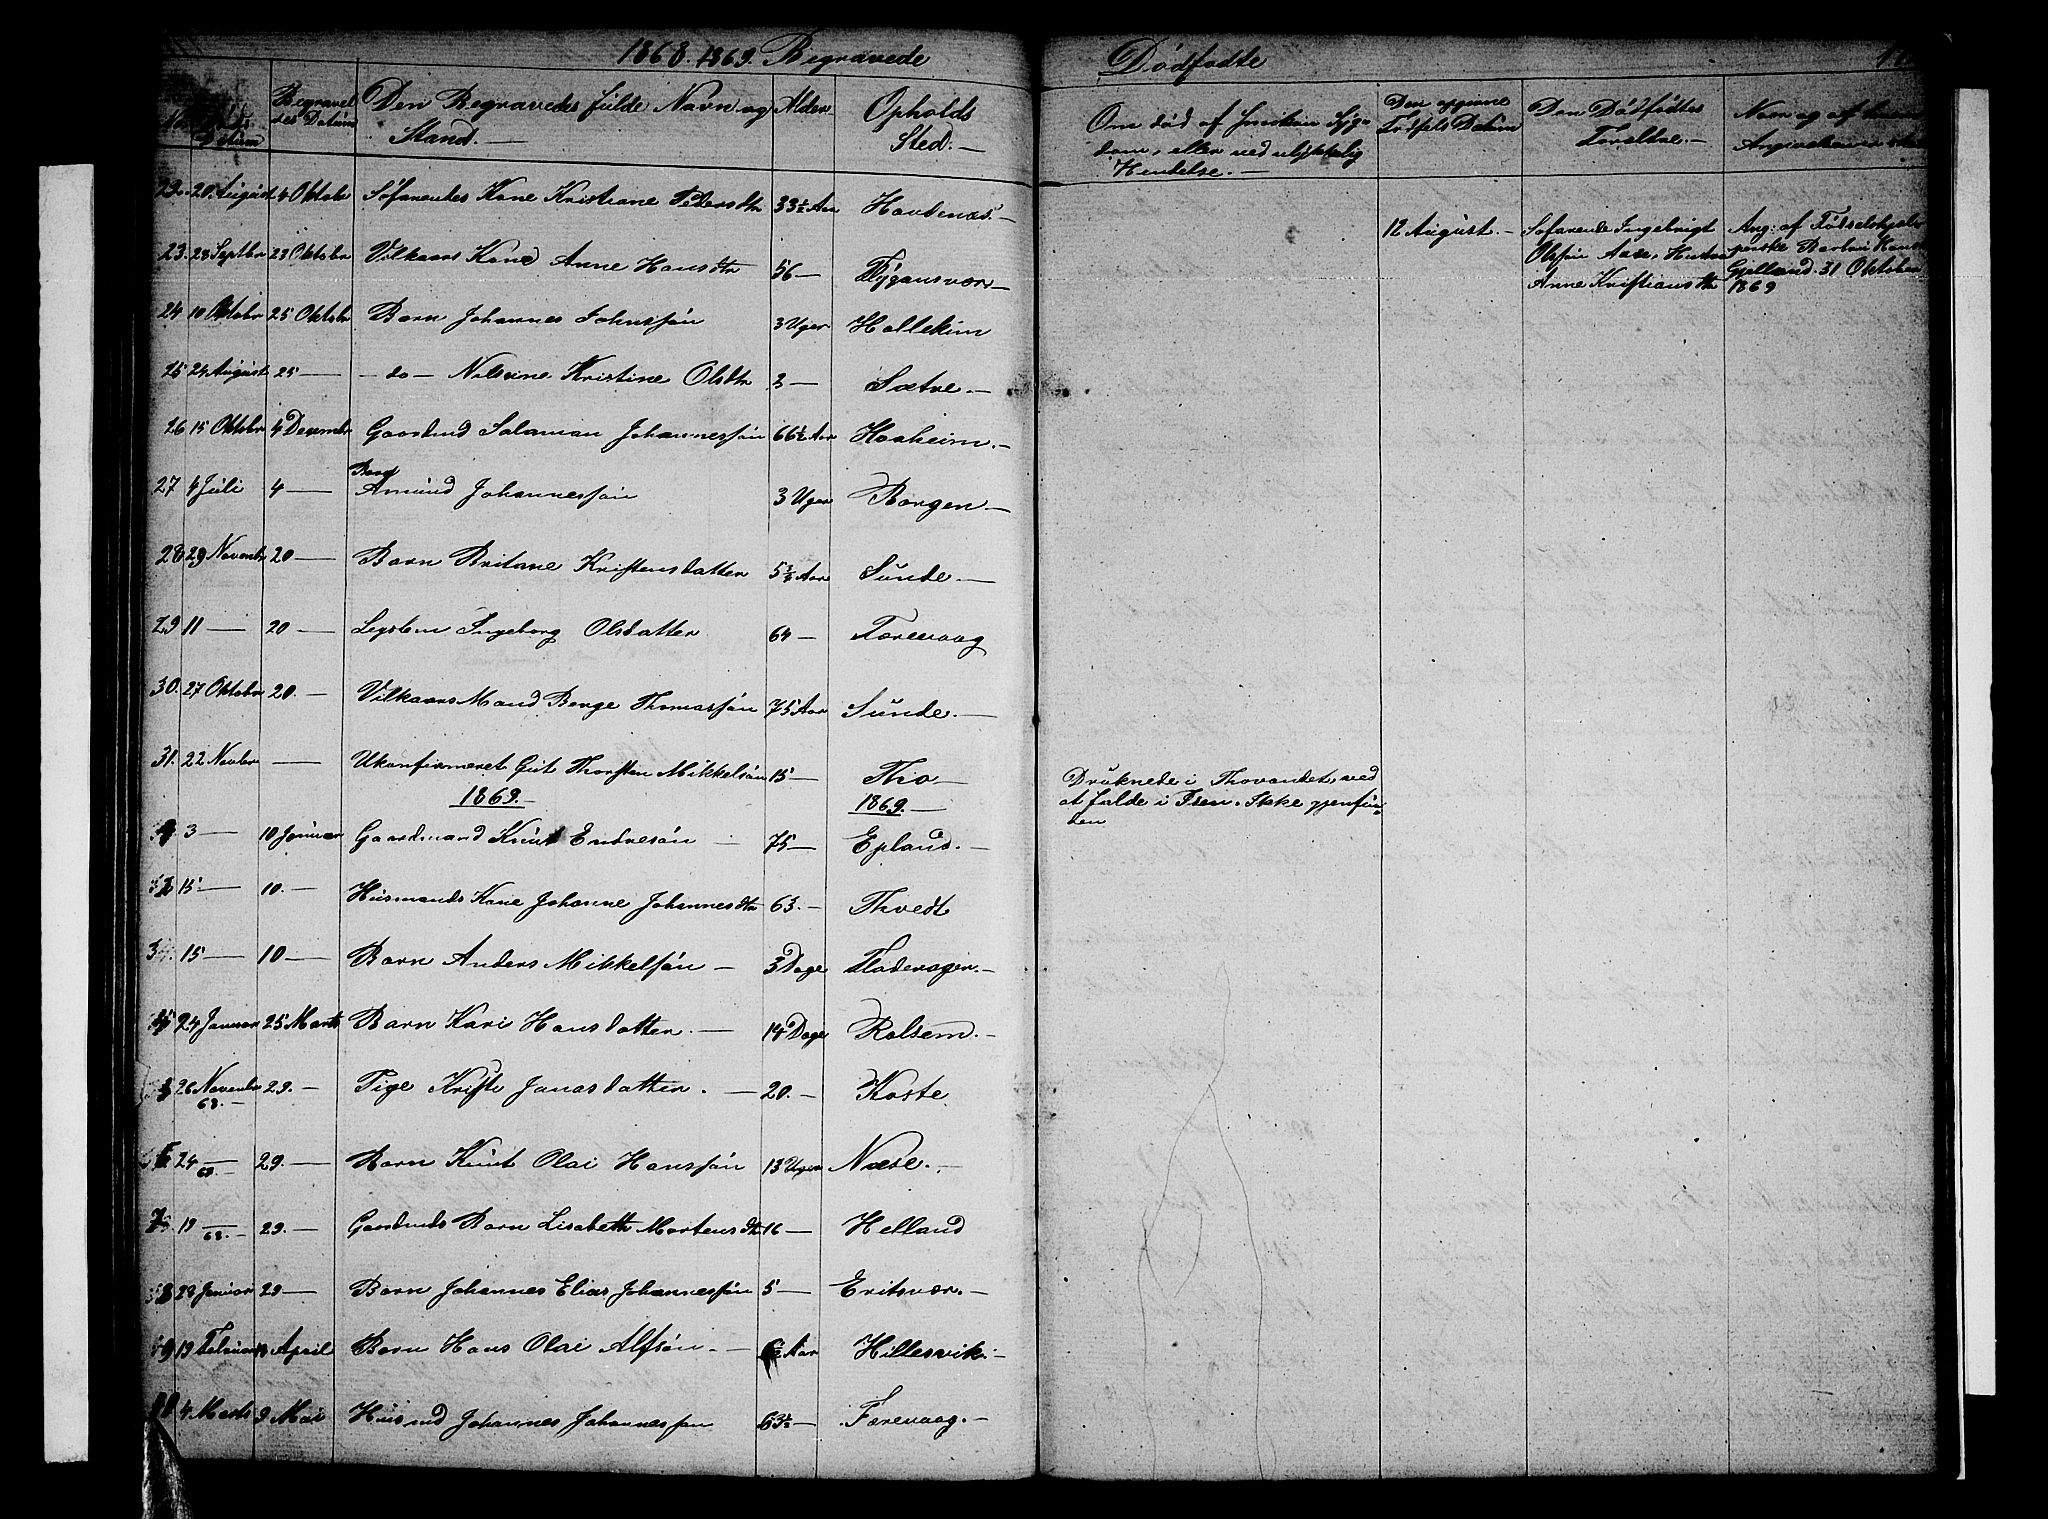 1868. 1869. Begravede
Dødfødte
Datum
Begravel
des Datum
Den Begravedes fulde Navn og
Stand. —
Alder
Opholds
Sted. —
Om død af Smitsom Syg-
dom, eller ved ulykkelig
Hendelse. —
Den opgivne
Fødsels Datum
Den Dødfødtes
Foreldre. —
Navn og af hvem
20 August 4 Oktobr Søfarendes Kone Kristiane Pedersdtr 33½ Aar
12 August. — Søfarende Ingebrigt
Olssøn Aase, Hustru
Anne Kristiansdtr
Ang: af Fødselshjel
perske Barbru Hans
Gjelland. 31 Oktober
1869
23. 28 Septbr 23 Oktobr Vilkaars Kone Anne Hansdtr 56 —
24 10 Oktobr 25 Oktobr Barn Johannes Johnssøn 3 Uger
25 24 August 25 — — do — Nilsine Kristine Olsdtr 2 — Sætre —
26 15 Oktobr 4 Desembr Gaardmd Salamon Johannessøn 66½ Aar Haaheim. —
27 4 Juli 4 — Barn Amund Johannessøn 3 Uger Borgen —
28 29 Novembr 20 — Barn Britane Kristensdatter 5 Aar Sunde —
29 11 — 20 — Legslem Ingeborg Olsdatter 64 — Færevaag
30. 27 Oktobr 20. — Vilkaars Mand Berge Thomassøn 75 Aar Sunde. —
31. 22 Novbr — Ukonfirmeret Gut Thorsten Mikkelsøn 15 — Tho —
Druknede i Thovandet, ved
at falde i Isen. Ikke gjenfun-
den
1869. 1869. —
3 — 10 Januar Gaardmand Knut Endresøn — 75 — Epland. —
15 — 10. — Husmands Kone Johanne Johannesdtr 63. — Thvedt
15 — 10 — Barn Anders Mikkelsøn — 3 Dage
24 Januar 25 Marts Barn Kari Hansdatter. — 14 Dage Rolsem. —
26 Novembr 68. — 29. — Pige Kristi Jonasdatter. — 20. — Koste
24 — 68. — 29. — Barn Knut Olai Hanssøn 13 Uger Næse. —
7 19 — 68. — 29. — Gaardmds Barn Lisabeth Mortensdtr 16 — Helland
28 Januar 29 — Barn Johannes Elias Johannessøn 5 — Eritsvær. —
19 Februar April Barn Hans Olai Alfsøn. — Aar Hillesvik. —
4 Marts 9 Mai Husmd Johannes Johannessøn 63½ — Færevaag. —